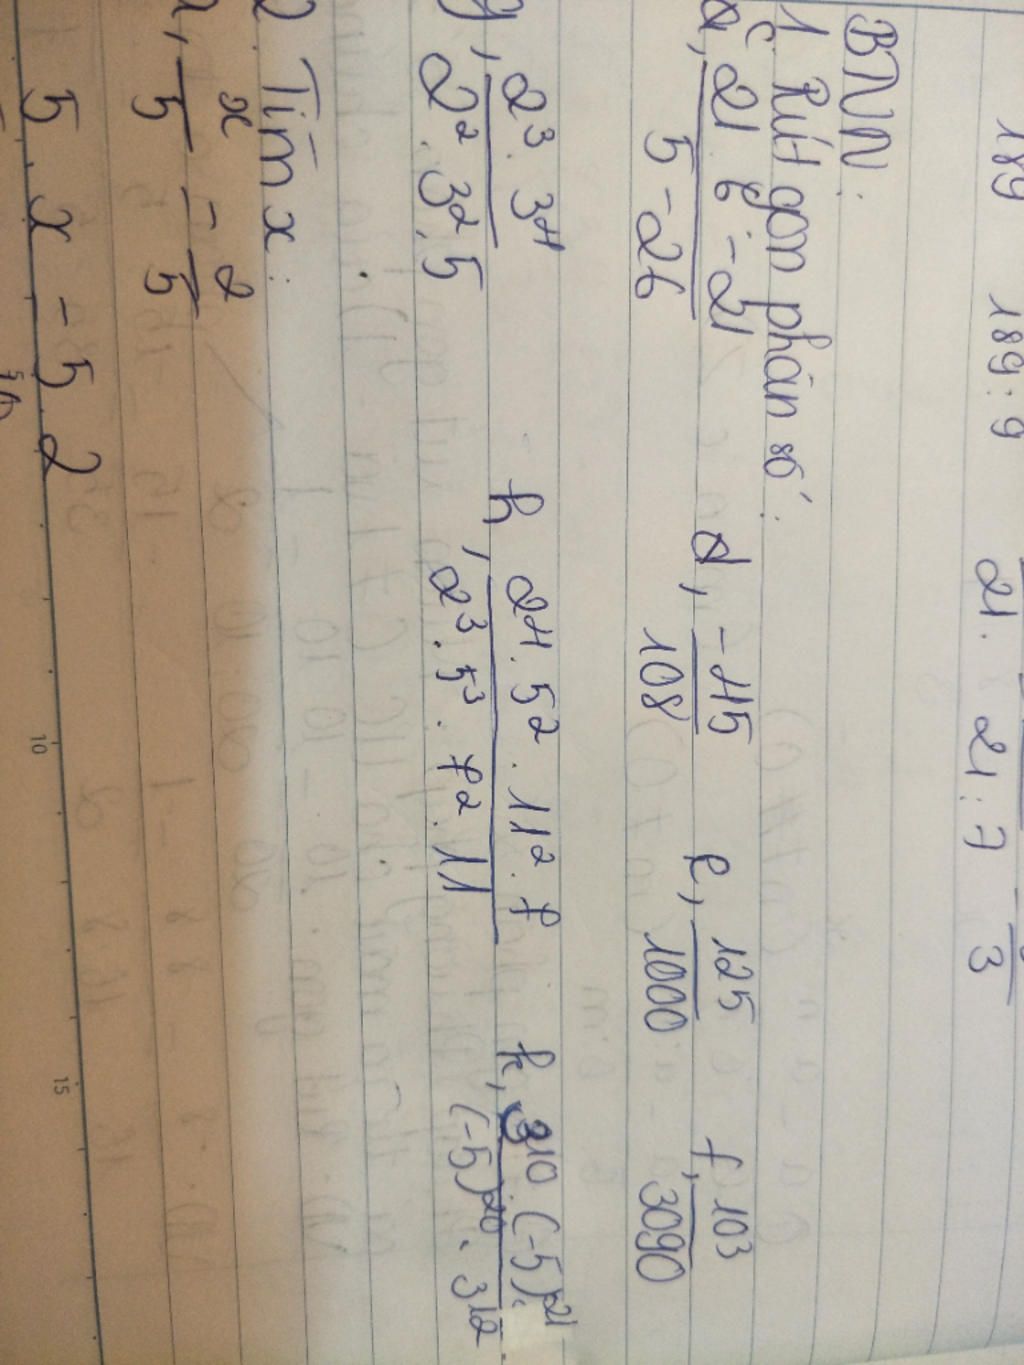 189 189 : 9 21. 21 : 7 3
BTVN :
1. Rút gọn phân số :
c, 21.6-21 / 5-26 d, -45/108 e, 125/1000 f, 103/3090
g, 2³.3⁴ / 2².3².5 h, 2⁴.5².11².7 / 2³.5³.7².11 k, 3¹⁰.(-5)²¹ / (-5)²⁰.3¹²
2. Tìm x :
a, x/5 = 2/5
5.x = 5.2
10 15